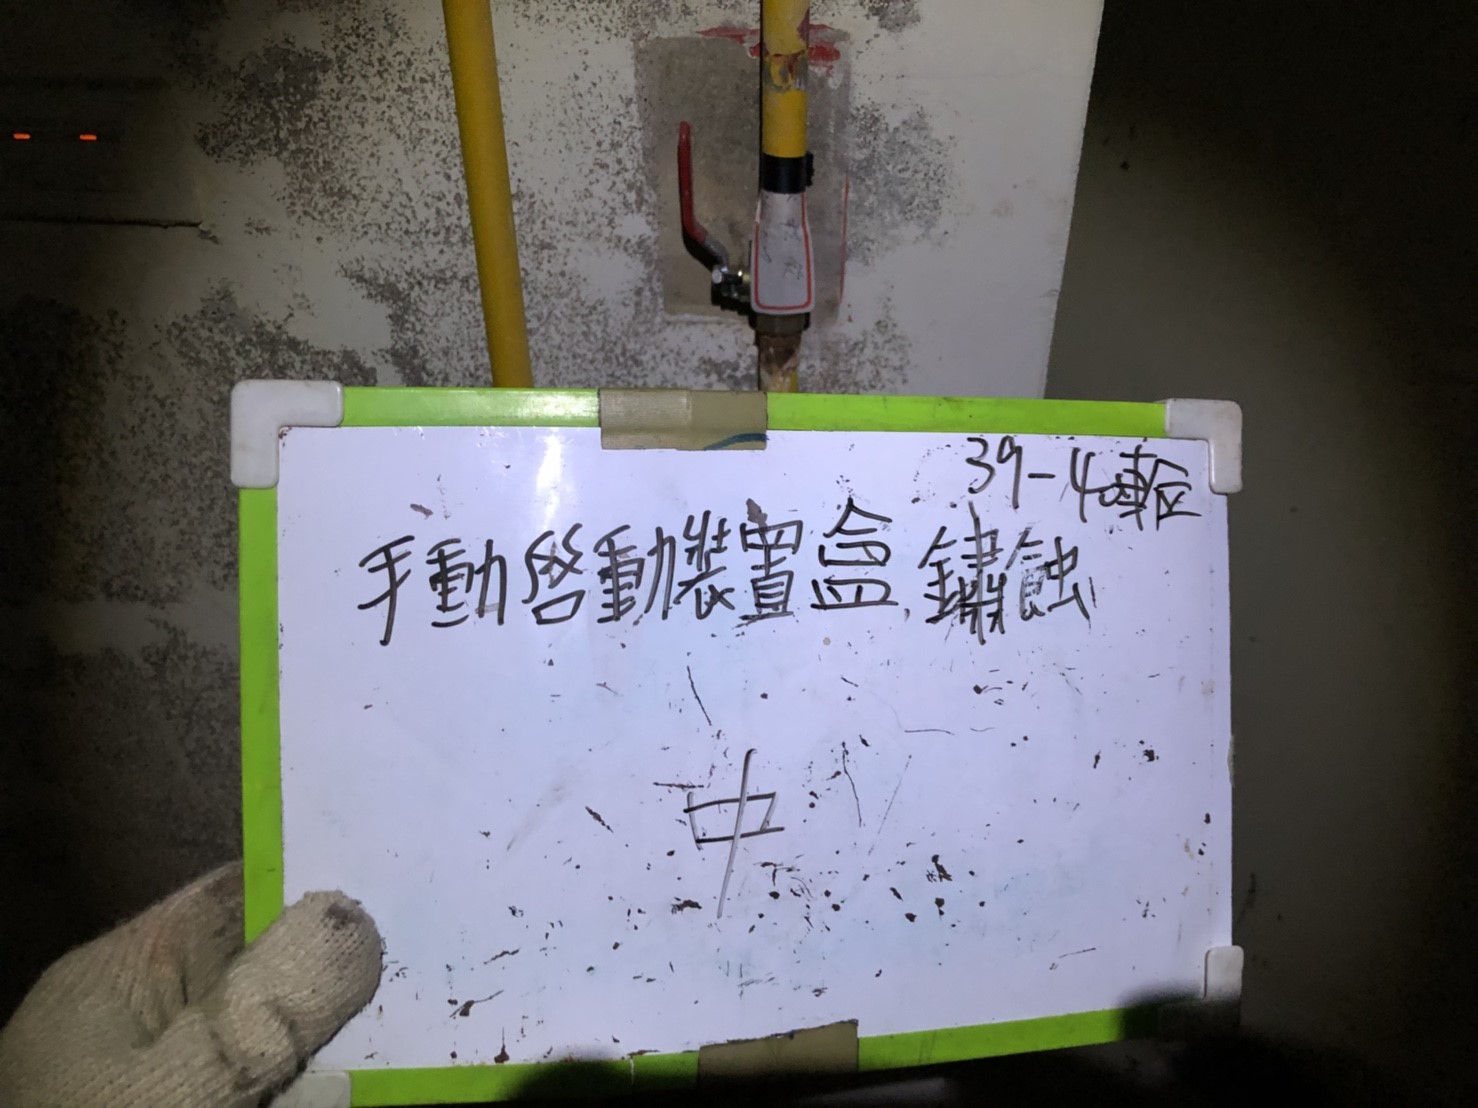 39-4車區
手動啓動裝置盒鏽蝕
中